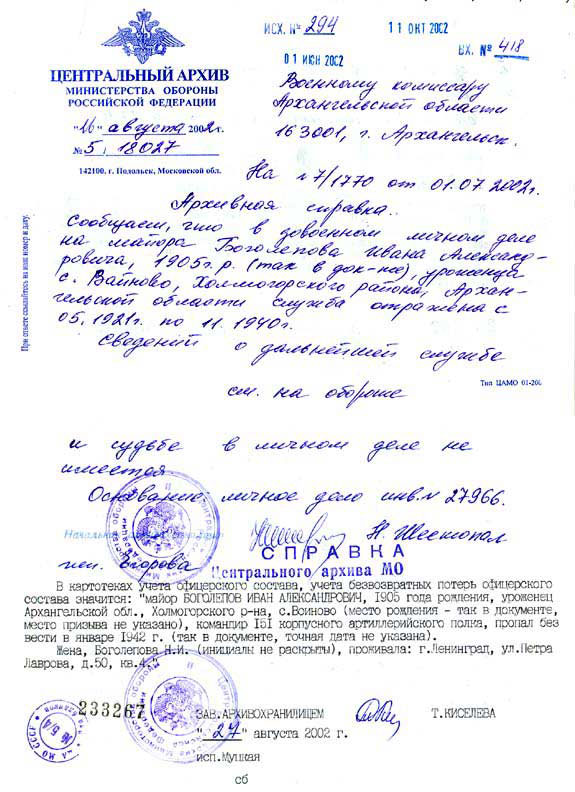 ИСХ. № 294
11 ОКТ 2002
01 ИЮН 2002
ВХ. № 418
ЦЕНТРАЛЬНЫЙ АРХИВ
МИНИСТЕРСТВА ОБОРОНЫ
РОССИЙСКОЙ ФЕДЕРАЦИИ
"16" августа 2002 г.
№ 5/18027
142100, г. Подольск, Московской обл.
Военному комиссару
Архангельской области
163001, г. Архангельск.
На № 7/1770 от 01.07.2002г.
При ответе ссылайтесь на наш номер и дату.
Архивная справка.
Сообщаем, что в довоенном личном деле
на майора Боголепова Ивана Александ-
ровича, 1905г.р. (так в док-те), уроженца
с. Вайново, Холмогорского района, Архан-
гельской области служба отражена с
05.1921г. по 11.1940г.
Сведений о дальнейшей службе
см. на обороте
Тип ЦАМО 01-200
и судьбе в личном деле не
имеется
Основание: личное дело инв.№ 27966.
Начальник
Н. Шестопал
исп. Егорова
СПРАВКА
Центрального архива МО
В картотеках учета офицерского состава, учета безвозвратных потерь офицерского
состава значится: "майор БОГОЛЕПОВ ИВАН АЛЕКСАНДРОВИЧ, 1905 года рождения, уроженец
Архангельской обл., Холмогорского р-на, с.Всиново (место рождения - так в документе,
место призыва не указано), командир 151 корпусного артиллерийского полка, пропал без
вести в январе 1942 г. (так в документе, точная дата не указана).
Жена, Боголепова Н.И. (инициалы не раскрыты), проживала: г.Ленинград, ул.Петра
Лаврова, д.50, кв.4."
233267
ЗАВ.АРХИВОХРАНИЛИЩЕМ
Т.КИСЕЛЕВА
"27" августа 2002 г.
исп.Муцкая
сб